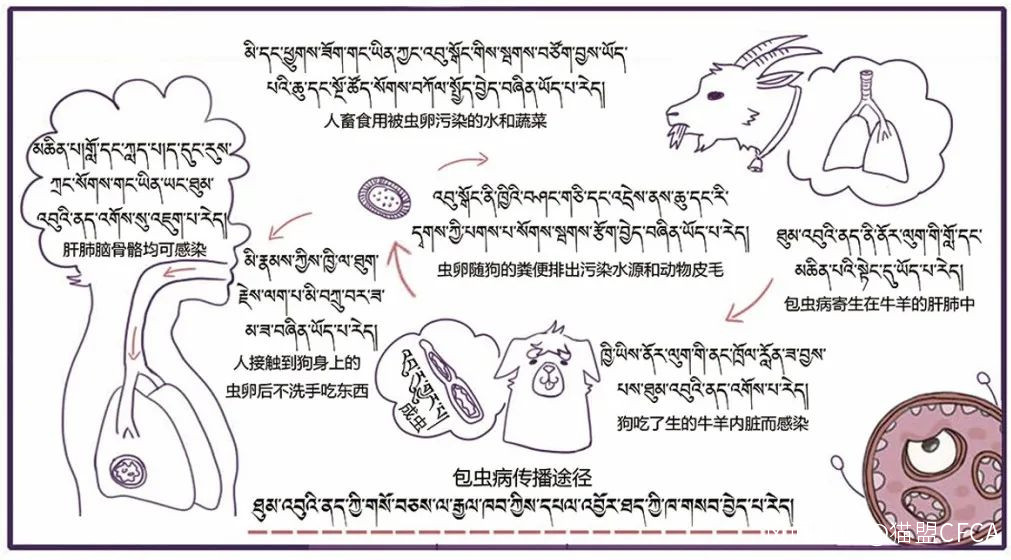 མི་དང་ཕྱུགས་ཟོག་གང་ཡིན་ཀྱང་འབུ་སྒོང་གིས་སྦགས་བཙོག་བྱས་ཡོད་
པའི་ཆུ་དང་སྔོ་ཚོད་སོགས་བཀོལ་སྤྱོད་བྱེད་བཞིན་ཡོད་པ་རེད།
人畜食用被虫卵污染的水和蔬菜
མཆིན་པ།གློ་དང་ཀླད་པ།ད་དུང་རུས་
ཀྲང་སོགས་གང་ཡིན་ཡང་ཐུམ་
འབུའི་ནད་འགོས་སུ་འཇུག་པ་རེད།
肝肺脑骨骼均可感染
འབུ་སྒོང་ནི་ཁྱིའི་བཤང་གཅི་དང་འདྲེས་ནས་ཆུ་དང་རི་
དྭགས་ཀྱི་པགས་པ་སོགས་སྦགས་རྩོག་བྱེད་བཞིན་ཡོད་པ་རེད།
虫卵随狗的粪便排出污染水源和动物皮毛
ཐུམ་འབུའི་ནད་ནི་ནོར་ལུག་གི་གློ་དང་
མཆིན་པའི་སྟེང་དུ་ཡོད་པ་རེད།
包虫病寄生在牛羊的肝肺中
མི་རྣམས་ཀྱིས་ཁྱི་ལ་ཐུག་
རྗེས་ལག་པ་མི་བཀྲུ་བར་ཟ་
མ་ཟ་བཞིན་ཡོད་པ་རེད།
人接触到狗身上的
虫卵后不洗手吃东西
成虫
ཁྱི་ཡིས་ནོར་ལུག་གི་ནང་ཁྲོལ་རློན་ཟ་བྱས་
པས་ཐུམ་འབུའི་ནད་འགོས་པ་རེད།
狗吃了生的牛羊内脏而感染
包虫病传播途径
ཐུམ་འབུའི་ནད་ཀྱི་གསོ་བཅས་ལ་རྒྱལ་ཁབ་ཀྱིས་དཔལ་འབྱོར་ཐད་ཀྱི་ཁ་གསབ་བྱེད་པ་རེད།
猫盟CFCA